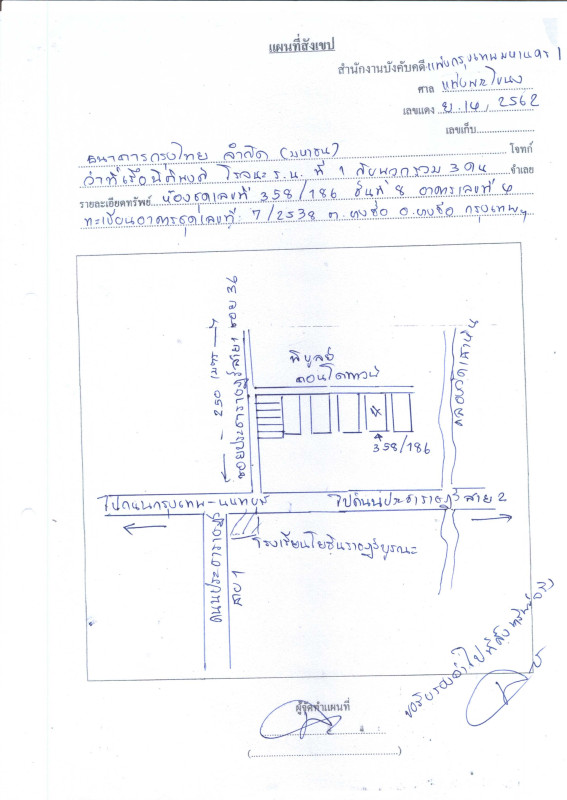 แผนที่สังเขป
สำนักงานบังคับคดีแพ่งกรุงเทพมหานคร 1
ศาล แพ่งพระโขนง
เลขแดง ย.14, 2562
เลขเก็บ
ธนาคารกรุงไทย จำกัด (มหาชน) โจทก์
ว่าที่เรือ ร.น. ที่ 1 กับพวกรวม 3 คน จำเลย
รายละเอียดทรัพย์ ห้องชุดเลขที่ 358/186 ชั้นที่ 8 อาคารเลขที่ 4
ทะเบียนอาคารชุดเลขที่ 7/2538 ต.บางซื่อ อ.บางซื่อ กรุงเทพฯ
250 เมตร
ซอยประชาราษฎร์สาย 1 ซอย 36
พิบูลย์
คอนโดทาวน์
358/186
ไปถนนกรุงเทพ-นนทบุรี
ไปถนนประชาราษฎร์ สาย 2
โรงเรียนโยธินบูรณะ
ถนนประชาราษฎร์
สาย 1
ผู้จัดทำแผนที่
(                    )